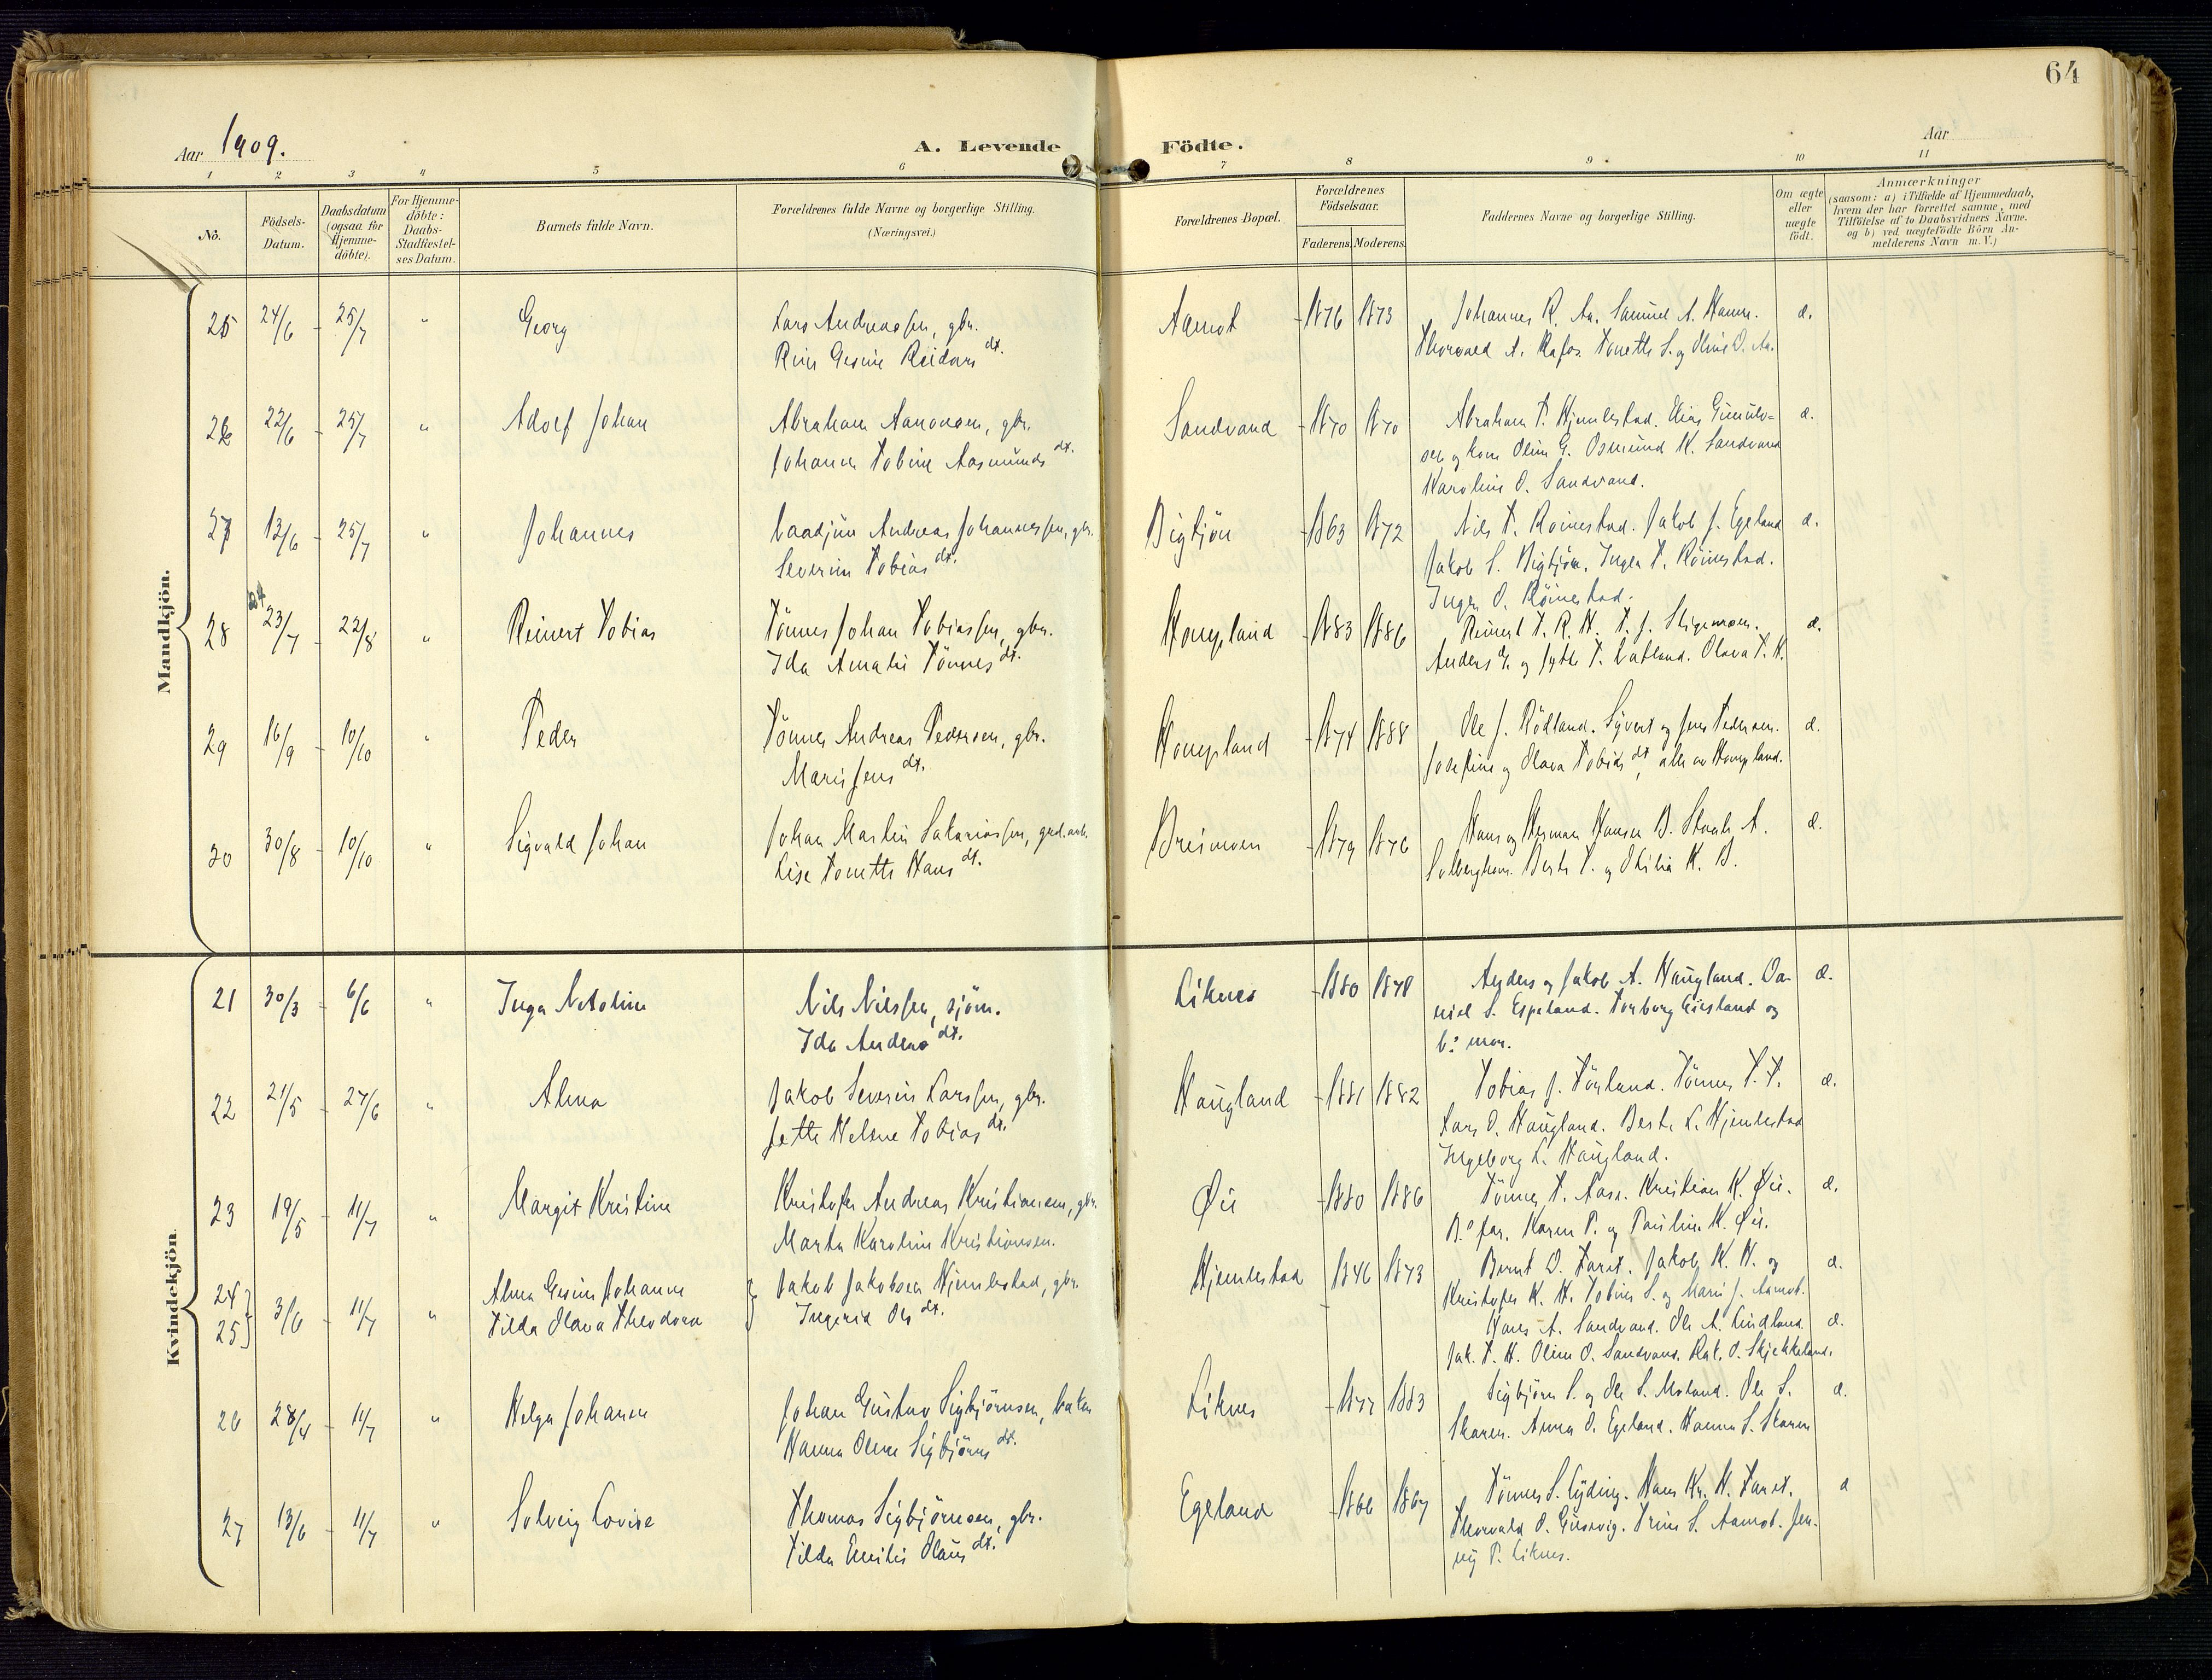 64
Aar 1909.
A. Levende Födte.
Aar
1 2 3 4 5 6 7 8 9 10 11
No.
Födsels-Datum.
Daabsdatum (ogsaa for Hjemme-döbte).
For Hjemme-döbte: Daabs-Stadfæstel-ses Datum.
Barnets fulde Navn.
Forældrenes fulde Navne og borgerlige Stilling.
(Næringsvei.)
Forældrenes Bopæl.
Forældrenes Födselsaar.
Faderens. Moderens.
Faddernes Navne og borgerlige Stilling.
Om ægte eller uægte födt.
Anmærkninger
(saasom: a) i Tilfælde af Hjemmedaab,
hvem der har forrettet samme, med
Tilföielse af to Daabsvidners Navne.
og b) ved uægtefödte Börn An-
melderens Navn m. V.)
Mandkjön.
25 24/6 25/7 " Georg Lars Andreassen, gbr. Aamot 1876 1873 Johannes R. Aa. Samuel A. Hamr. æ.
Rein Gesine Reidars dt. Thorvald A. Rafos. Tonette S. og Oline O. Aa.
26 22/6 25/7 " Adolf Johan Abraham Aanonsen, gbr. Sandvand 1870 1870 Abraham T. Hjemlestad. Elias Gunuls- æ.
Johanne Tobine Aasmunds dt. sen og kone Oline G. Osmund K. Sandvand
Karoline O. Sandvand.
27 13/6 25/7 " Johannes Andreas Johannessen, gbr. Bigtjön 1863 1872 Nils T. Röinestad. Jakob J. Egeland æ.
Severine Tobias dt. Jakob S. Bigtjön. Inger T. Röinestad.
Inger O. Röinestad.
28 24 23/7 22/8 " Reinert Tobias Tönnes Johan Tobiassen, gbr. Hompland 1883 1886 Reinert T. R. H. T. J. Stigemoen. æ.
Ida Amalie Tönnes dt. Anders og Jytte T. Olava T. H.
29 16/9 10/10 " Peder Tönnes Andreas Pedersen, gbr. Hompland 1874 1888 Ole J. Rödland. Syvert og Jens Pedersen. æ.
Marie Jens dt. Josefine og Olava Tobias dt, alle av Hompland.
30 30/8 10/10 " Sigvald Johan Johan Martin Sakariassen, grd.arb. Breimoen 1879 1876 Hans og Herman Hansen B. A. æ.
Lise Tonette Hans dt. Berte T. og Otilia H. B.
Kvindekjön.
21 30/3 6/6 " Inga Nicoline Nils Nilssen, sjöm. Liknes 1880 1878 Anders og Jakob A. Haugland. Da- æ.
Ida Anders dt. niel S. Espeland. Torborg og
b: mor.
22 21/5 27/6 " Alma Jakob Severin Larssen, gbr. Haugland 1881 1882 Tobias J. Töyland. Tönnes T. T. æ.
Jette Helene Tobias dt. Lars O. Haugland. Berte L. Hjemlestad
Ingeborg L. Haugland.
23 19/5 11/7 " Margit Kristine Kristofer Andreas Kristiansen, gbr. Øie 1880 1886 Tönnes T. Aasa. Kristian K. Øie. æ.
Marta Karoline Kristiansen. B: far. Karen P. og Pauline K. Øie.
24 25 3/6 11/7 " Alma Gesine Johanne Jakob Jakobsen Hjemlestad, gbr. Hjemlestad 1846 1873 Bernt O. Faret. Jakob K. H. og æ.
Tilda Olava Theodora Ingerid Ols dt. Kristofer K. H. Tobine S. og Marie J. Aamot.
Hans A. Sandvand. Ole A. Lindland. æ.
Jak. T. H. Oline O. Sandvand. Rak. O. Skjekkeland.
26 28/4 11/7 " Helga Johanne Johan Gustav Sigbjörnsen, baker Liknes 1877 1883 Sigbjörn S. og Ole S. Moland. Ole S. æ.
Hanna Oline Sigbjörns dt. Skaren. Anna O. Egeland. Hanna S. Skaren
27 13/6 11/7 " Solveig Lovise Thomas Sigbjörnsen, gbr. Egeland 1866 1867 Tönnes S. Hans Kr. H. Faret. æ
Tilda Emilie Olaus dt. Thorvald O. Gusevig. Trine S. Aamot. Jen-
ny P. Liknes.